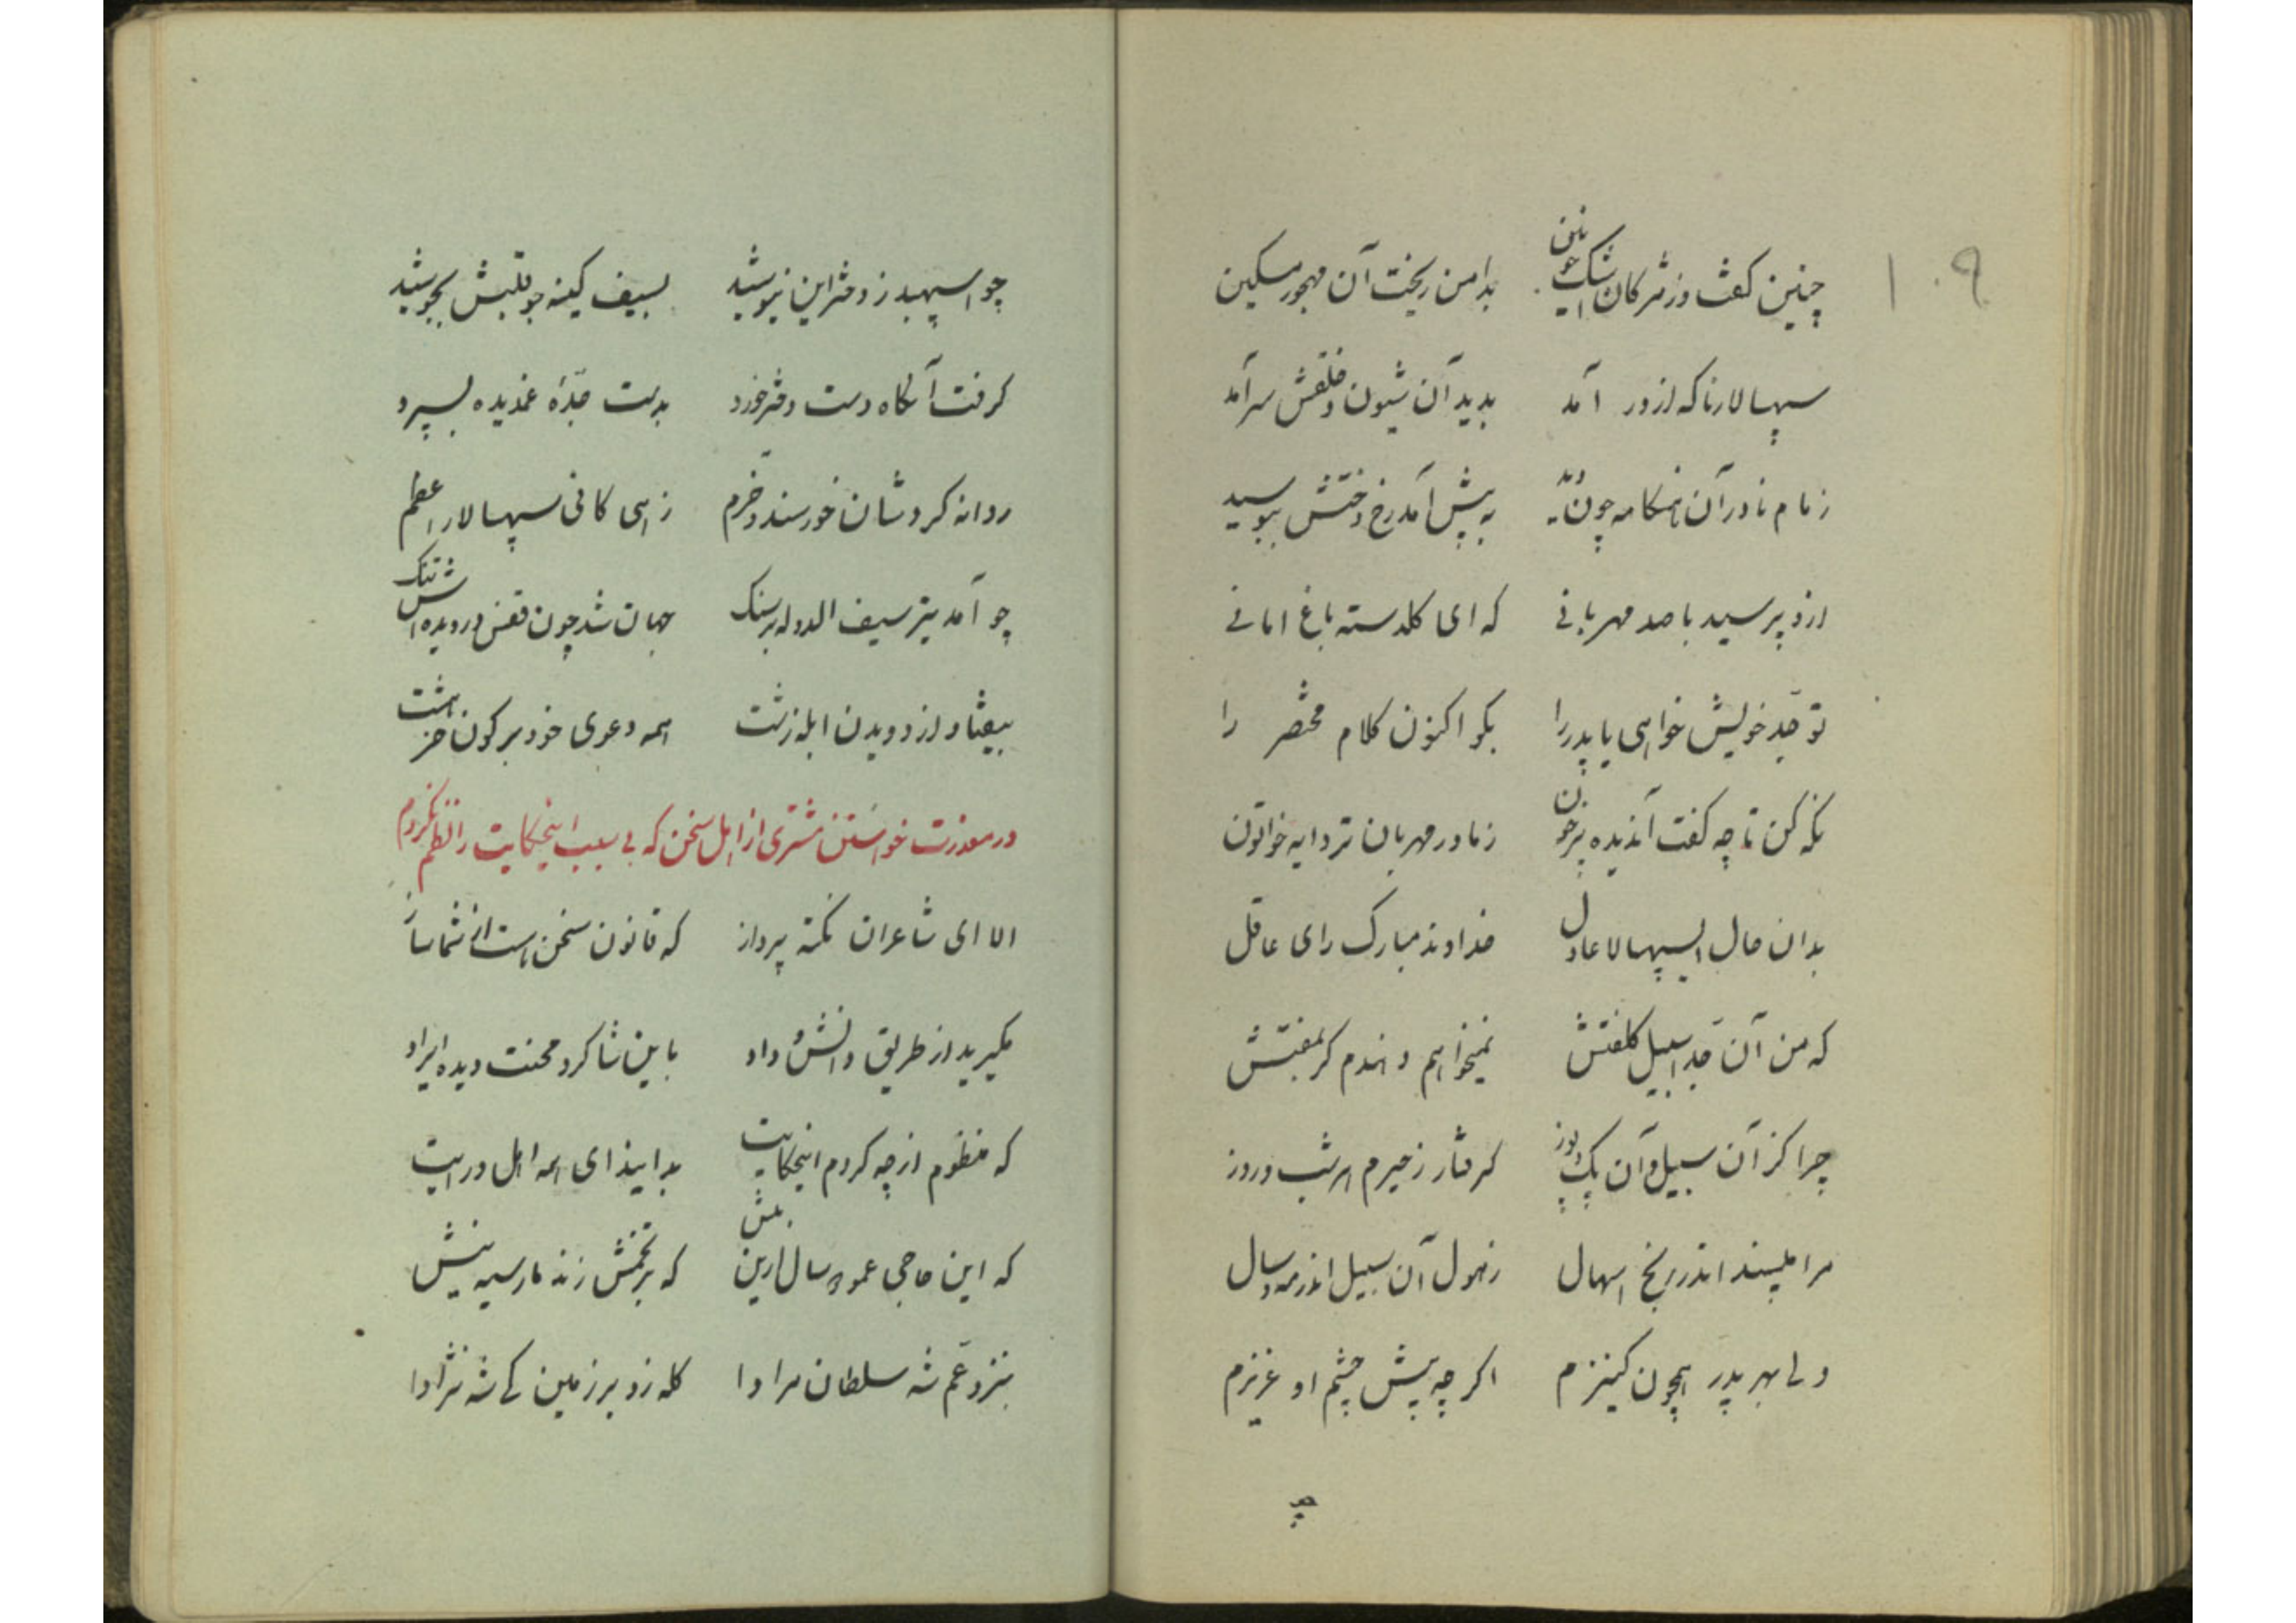 ۱۰۹
چنین گفت و ز مژگان اشک خونین بدامن ریخت آن مهجور مسکین
سپهسالار ناکه از در آمد بدید آن شیون و خلقش سرآمد
زمام نادر آن هنکامه چون دید به پیش آمد رخ دختش ببوسید
ازو پرسید با صد مهربانی که ای کلدسته باغ امانی
تو جد خویش خواهی یا پدر را بکو اکنون کلام مختصر را
نکه کن تا چه کفت آندیده پرخون ز مادر مهربان تر دایه خواتون
بدان حال اسپهسالا عادل خداوند مبارک رای عاقل
که من آن جد اسبیل کلفتش نمیخواهم دهندم کر بمفتش
چرا کز آن سبیل و آن پک و پوز کرفتار زحیرم هر شب و روز
مرا مپسند اندر رنج اسهال ز هول آن سبیل اندر مه و سال
ولی بهر پدر همچون کنیزم اکر چه پیش چشم او عزیزم
چو
چو اسپهبد ز دختر این نیوشید بسیف کینه جو قلبش بجوشید
کرفت آنکاه دست دختر خورد بدست جدهٔ غمدیده بسپرد
روانه کردشان خورسند و خرم زهی کافی سپهسالار اعظم
چو آمد تیر سیف الدوله بر سنک جهان شد چون قفس در دیده اش تنک
بیفتاد از دویدن ابله زشت همه دعوی خود بر کون خر هشت
در معذرت خواستن مشتری از اهل سخن که بی سبب اینحکایت را نظم نکردم
الا ای شاعران نکته پرداز که قانون سخن هست از شما ساز
مکیرید از طریق دانش و داد باین شاکرد محنت دیده ایراد
که منظوم از چه کردم اینحکایت بدانید ای همه اهل درایت
که این حاجی عمو پرسال ازین پیش که بر تخمش زند مار سیه نیش
بنزد عم شه سلطان مرادا کله زد بر زمین کی شه نژادا